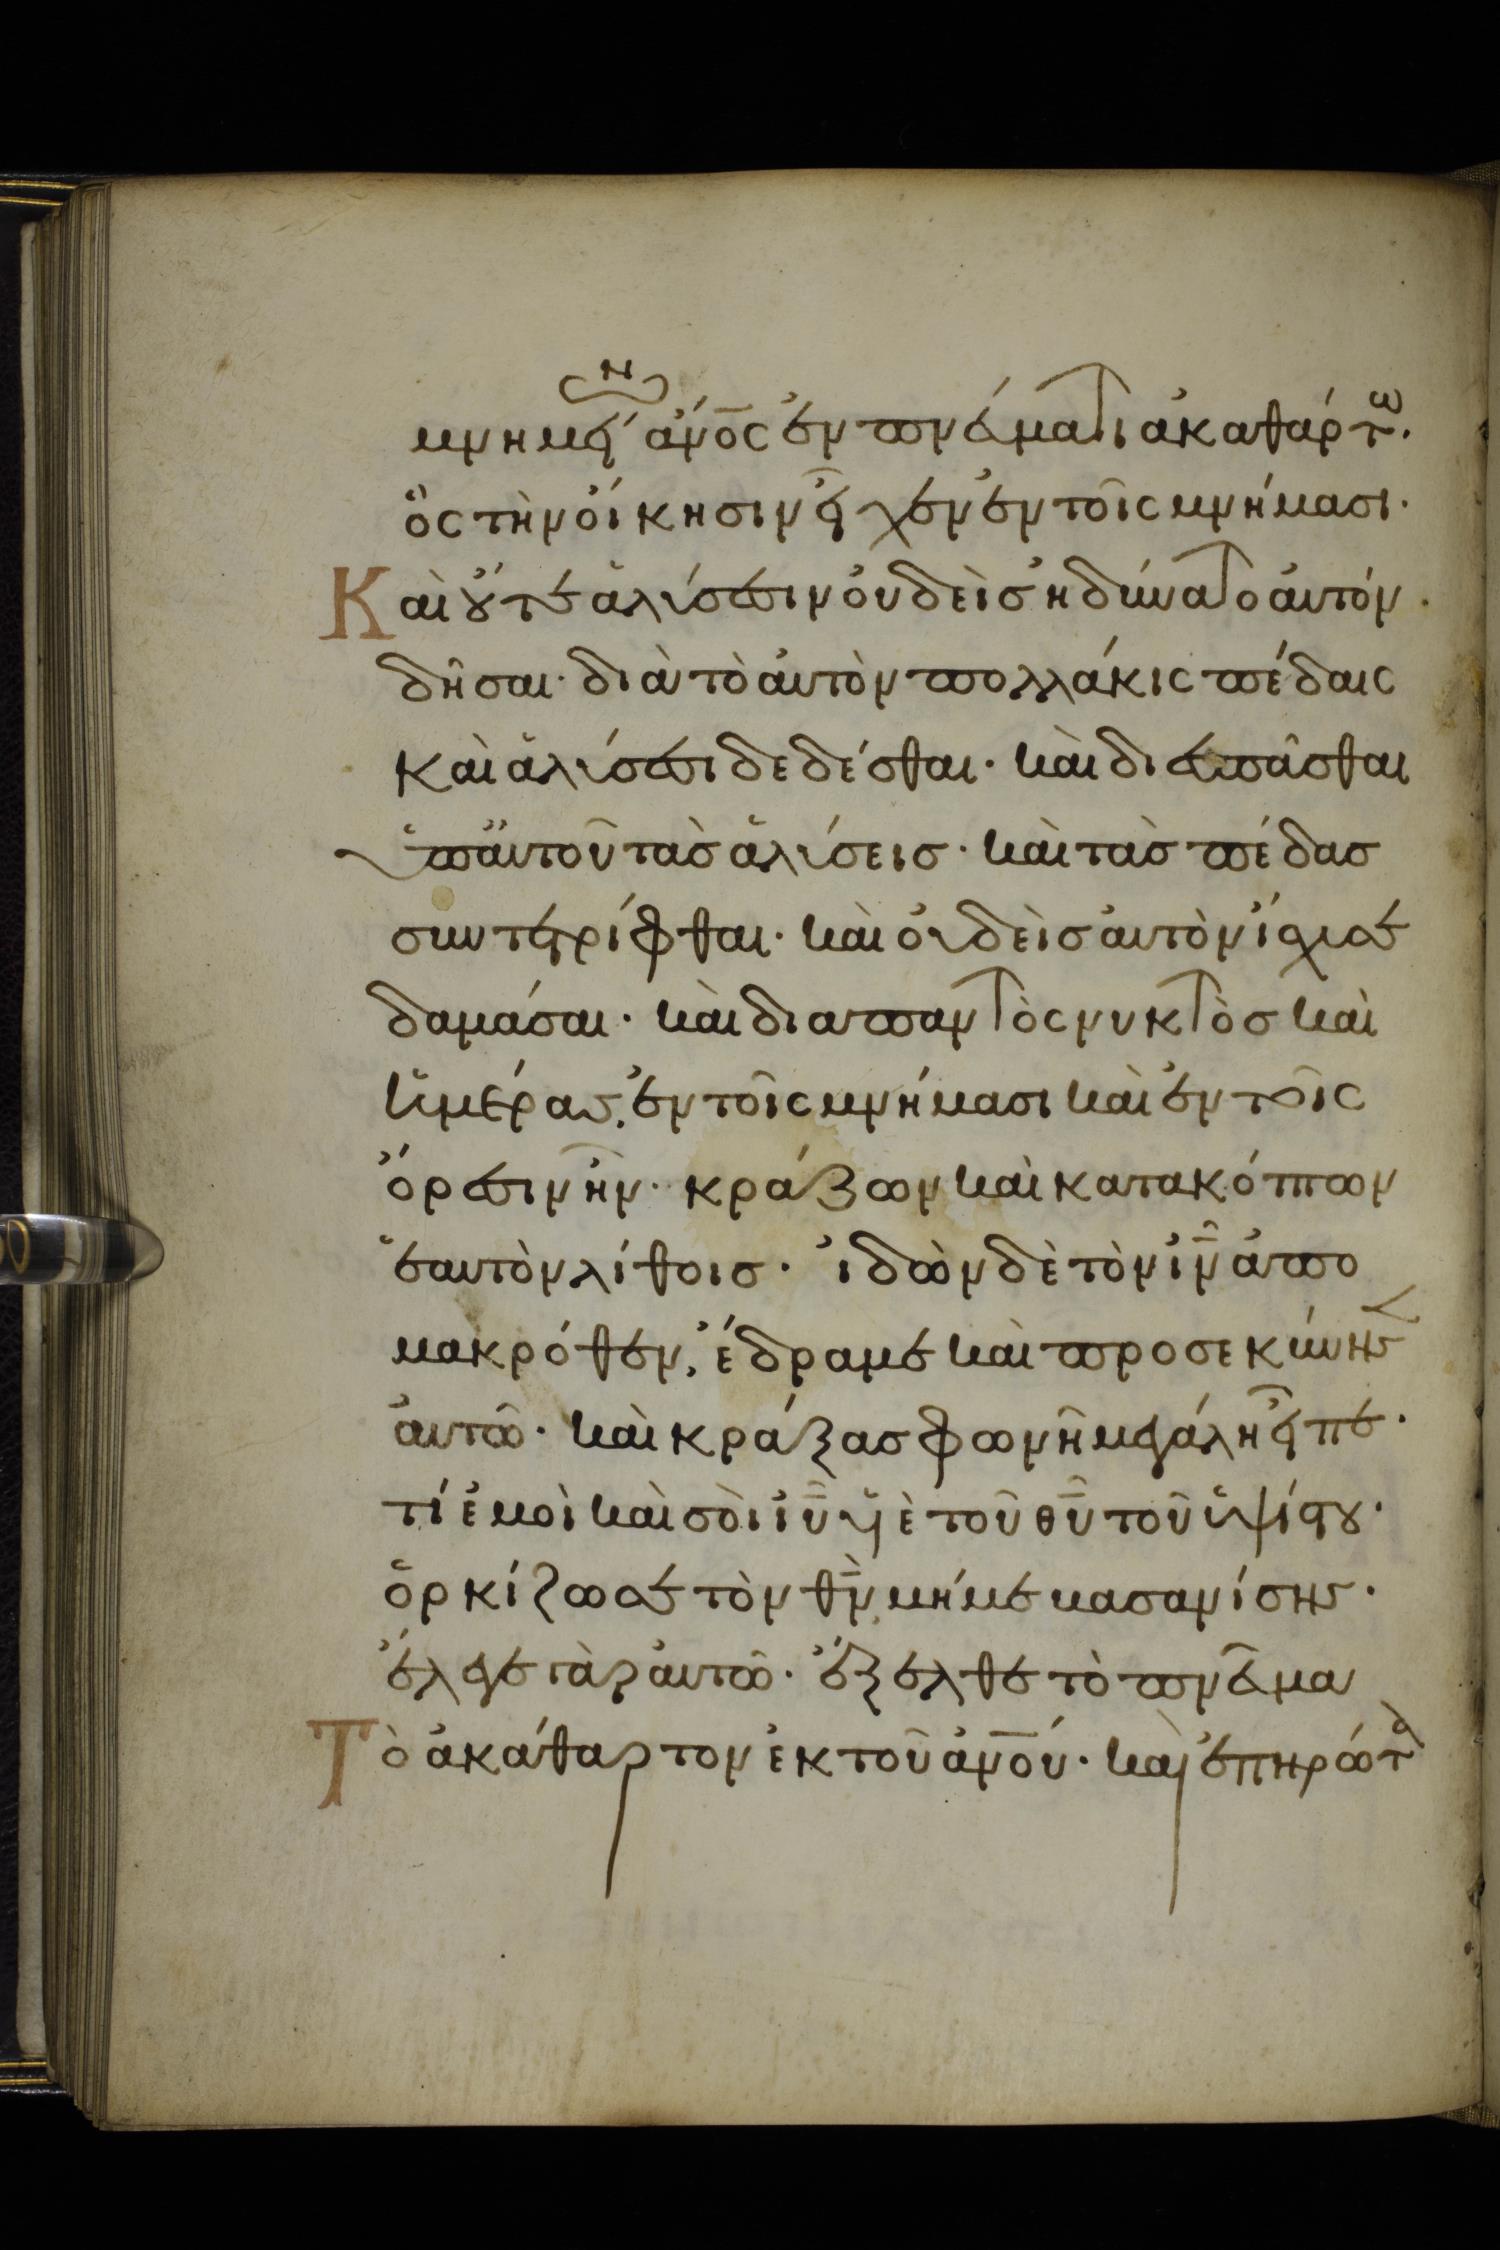 μνημείων ἄν̅ος ἐν πνεύματι ἀκαθάρτω.
ὃς τὴν οἴκησιν εἶχεν ἐν τοῖς μνήμασι.
Καὶ οὔτε ἁλύσεσιν οὐδεὶς ἠδύνατο αὐτὸν
δῆσαι· διὰ τὸ αὐτὸν πολλάκις πέδαις
καὶ ἁλύσεσι δεδέσθαι· καὶ διεσπᾶσθαι
ὑπ' αὐτοῦ τὰς ἁλύσεις· καὶ τὰς πέδας
συντετρίφθαι· καὶ οὐδεὶς αὐτὸν ἴσχυσε
δαμάσαι· καὶ διαπαντὸς νυκτὸς καὶ
ἡμέρας, ἐν τοῖς μνήμασι καὶ ἐν τοῖς
ὄρεσιν ἦν· κράζων καὶ κατακόπτων
ἑαυτὸν λίθοις· ἰδὼν δὲ τὸν ἰ̅ν̅ ἀπο
μακρόθεν, ἔδραμε καὶ προσεκύνησεν
αὐτῶ· καὶ κράξας φωνῆ μεγάλη εἶπε·
τί ἐμοὶ καὶ σοὶ ἰ̅υ̅ υἱὲ τοῦ θ̅υ̅ τοῦ ὑψίστου·
ὁρκίζω σε τὸν θ̅ν̅, μή με βασανίσης·
ἔλεγε γὰρ αὐτῶ· ἔξελθε τὸ πνεῦμα
Τὸ ἀκάθαρτον ἐκ τοῦ ἀν̅ου· καὶ ἐπηρώτα